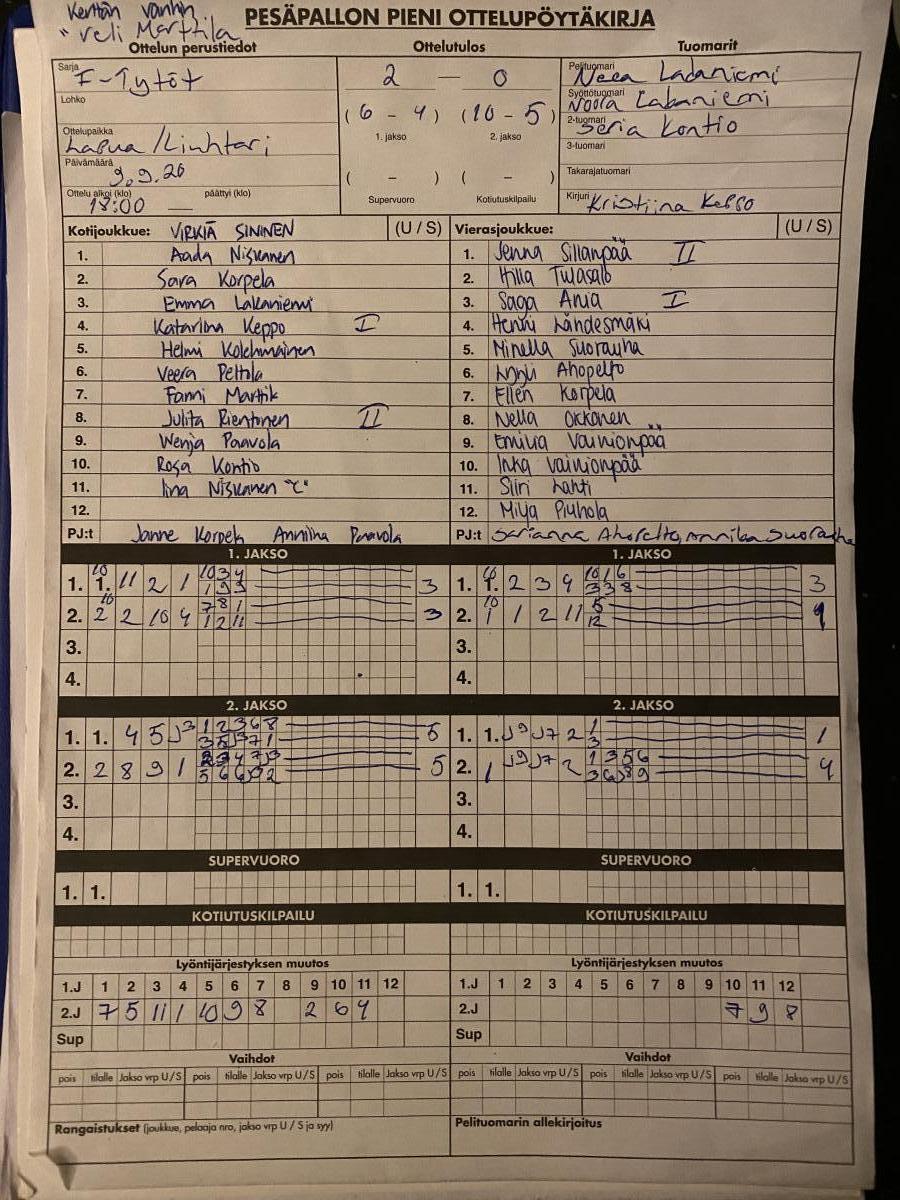 Kertän vanhin
" veli Marttila
PESÄPALLON PIENI OTTELUPÖYTÄKIRJA
Ottelun perustiedot Ottelutulos Tuomarit
Sarja F-Tytöt
Lohko
Ottelupaikka Lapua / Liuhtari
Päivämäärä 9.9.20
Ottelu alkoi (klo) 18:00 päättyi (klo) —
2 — 0
(6 - 4) (10 - 5)
1. jakso 2. jakso
( - ) ( - )
Supervuoro Kotiutuskilpailu
Pelituomari Neea Lakaniemi
Syöttötuomari Noora Lakaniemi
2-tuomari Kontio
3-tuomari
Takarajatuomari
Kirjuri Kristiina
Kotijoukkue: VIRKIÄ SININEN (U / S)
1. Aada Niskanen
2. Sara Korpela
3. Emma Lakaniemi
4. Katariina Keppo I
5. Helmi Kolehmainen
6. Veera Peltola
7. Fanni Marttik
8. Julita Rientonen II
9. Wenja Paavola
10. Rosa Kontio
11. Iina Niskanen "C"
12.
PJ:t Janne Korpela Anniina Paavola
Vierasjoukkue: (U / S)
1. Jenna Sillanpää II
2. Hilla Tulasalo
3. Saga Ania I
4. Henni Lähdesmäki
5. Minella Suorauha
6. Ahopelto
7. Ellen Korpela
8. Nella Okkonen
9. Emilia Vainionpää
10. Inka Vainionpää
11. Siiri Lahti
12. Milja Piuhola
PJ:t Sarianna Ahopelto, Annika Suorauha
1. JAKSO
1. 1. 11 2 1 10 3 4 3
1 9 3
2. 2 2 10 4 7 8 1 3
1 2 11
3.
4.
1. JAKSO
1. 1. 2 3 9 10 1 6 3
3 3 8
2. 1 1 2 11 5
12
3.
4.
2. JAKSO
1. 1. 4 5 J3 1 2 3 6 8 5
2. 2 8 9 1 5
3.
4.
2. JAKSO
1. 1. J9 J7 2 1 1
3
2. 1 J9 J7 2 1 3 5 6 4
3.
4.
SUPERVUORO
1. 1.
SUPERVUORO
1. 1.
KOTIUTUSKILPAILU
KOTIUTUSKILPAILU
Lyöntijärjestyksen muutos
1.J 1 2 3 4 5 6 7 8 9 10 11 12
2.J 7 5 11 1 10 9 8 2 6 4
Sup
Lyöntijärjestyksen muutos
1.J 1 2 3 4 5 6 7 8 9 10 11 12
2.J 7 9 8
Sup
Vaihdot
pois tilalle Jakso vrp U/S pois tilalle Jakso vrp U/S pois tilalle Jakso vrp U/S
Vaihdot
pois tilalle Jakso vrp U/S pois tilalle Jakso vrp U/S pois tilalle Jakso vrp U/S
Rangaistukset (joukkue, pelaaja nro, jakso vrp U / S ja syy)
Pelituomarin allekirjoitus